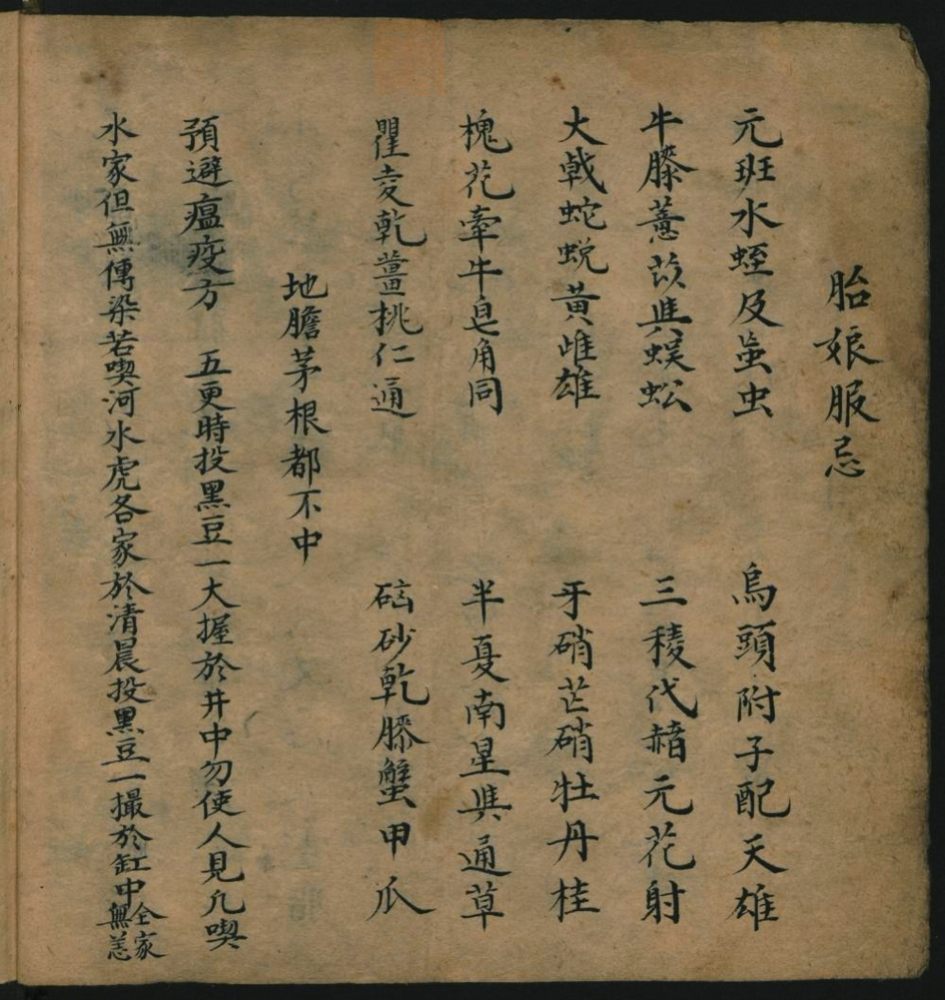 胎娘服忌
元班水蛭及虻虫 烏頭附子配天雄
牛膝薏苡與蜈蚣 三稜代赭元花射
大戟蛇蜕黄雌雄 牙硝芒硝牡丹桂
槐花牽牛皂角同 半夏南星與通草
瞿麦乾薑桃仁通 硇砂乾膝蟹甲爪
地膽茅根都不中
預避瘟疫方 五更時投黑豆一大握於井中勿使人見凢喫
水家但無傳染若喫河水虎各家於清晨投黑豆一撮於缸中全家無恙